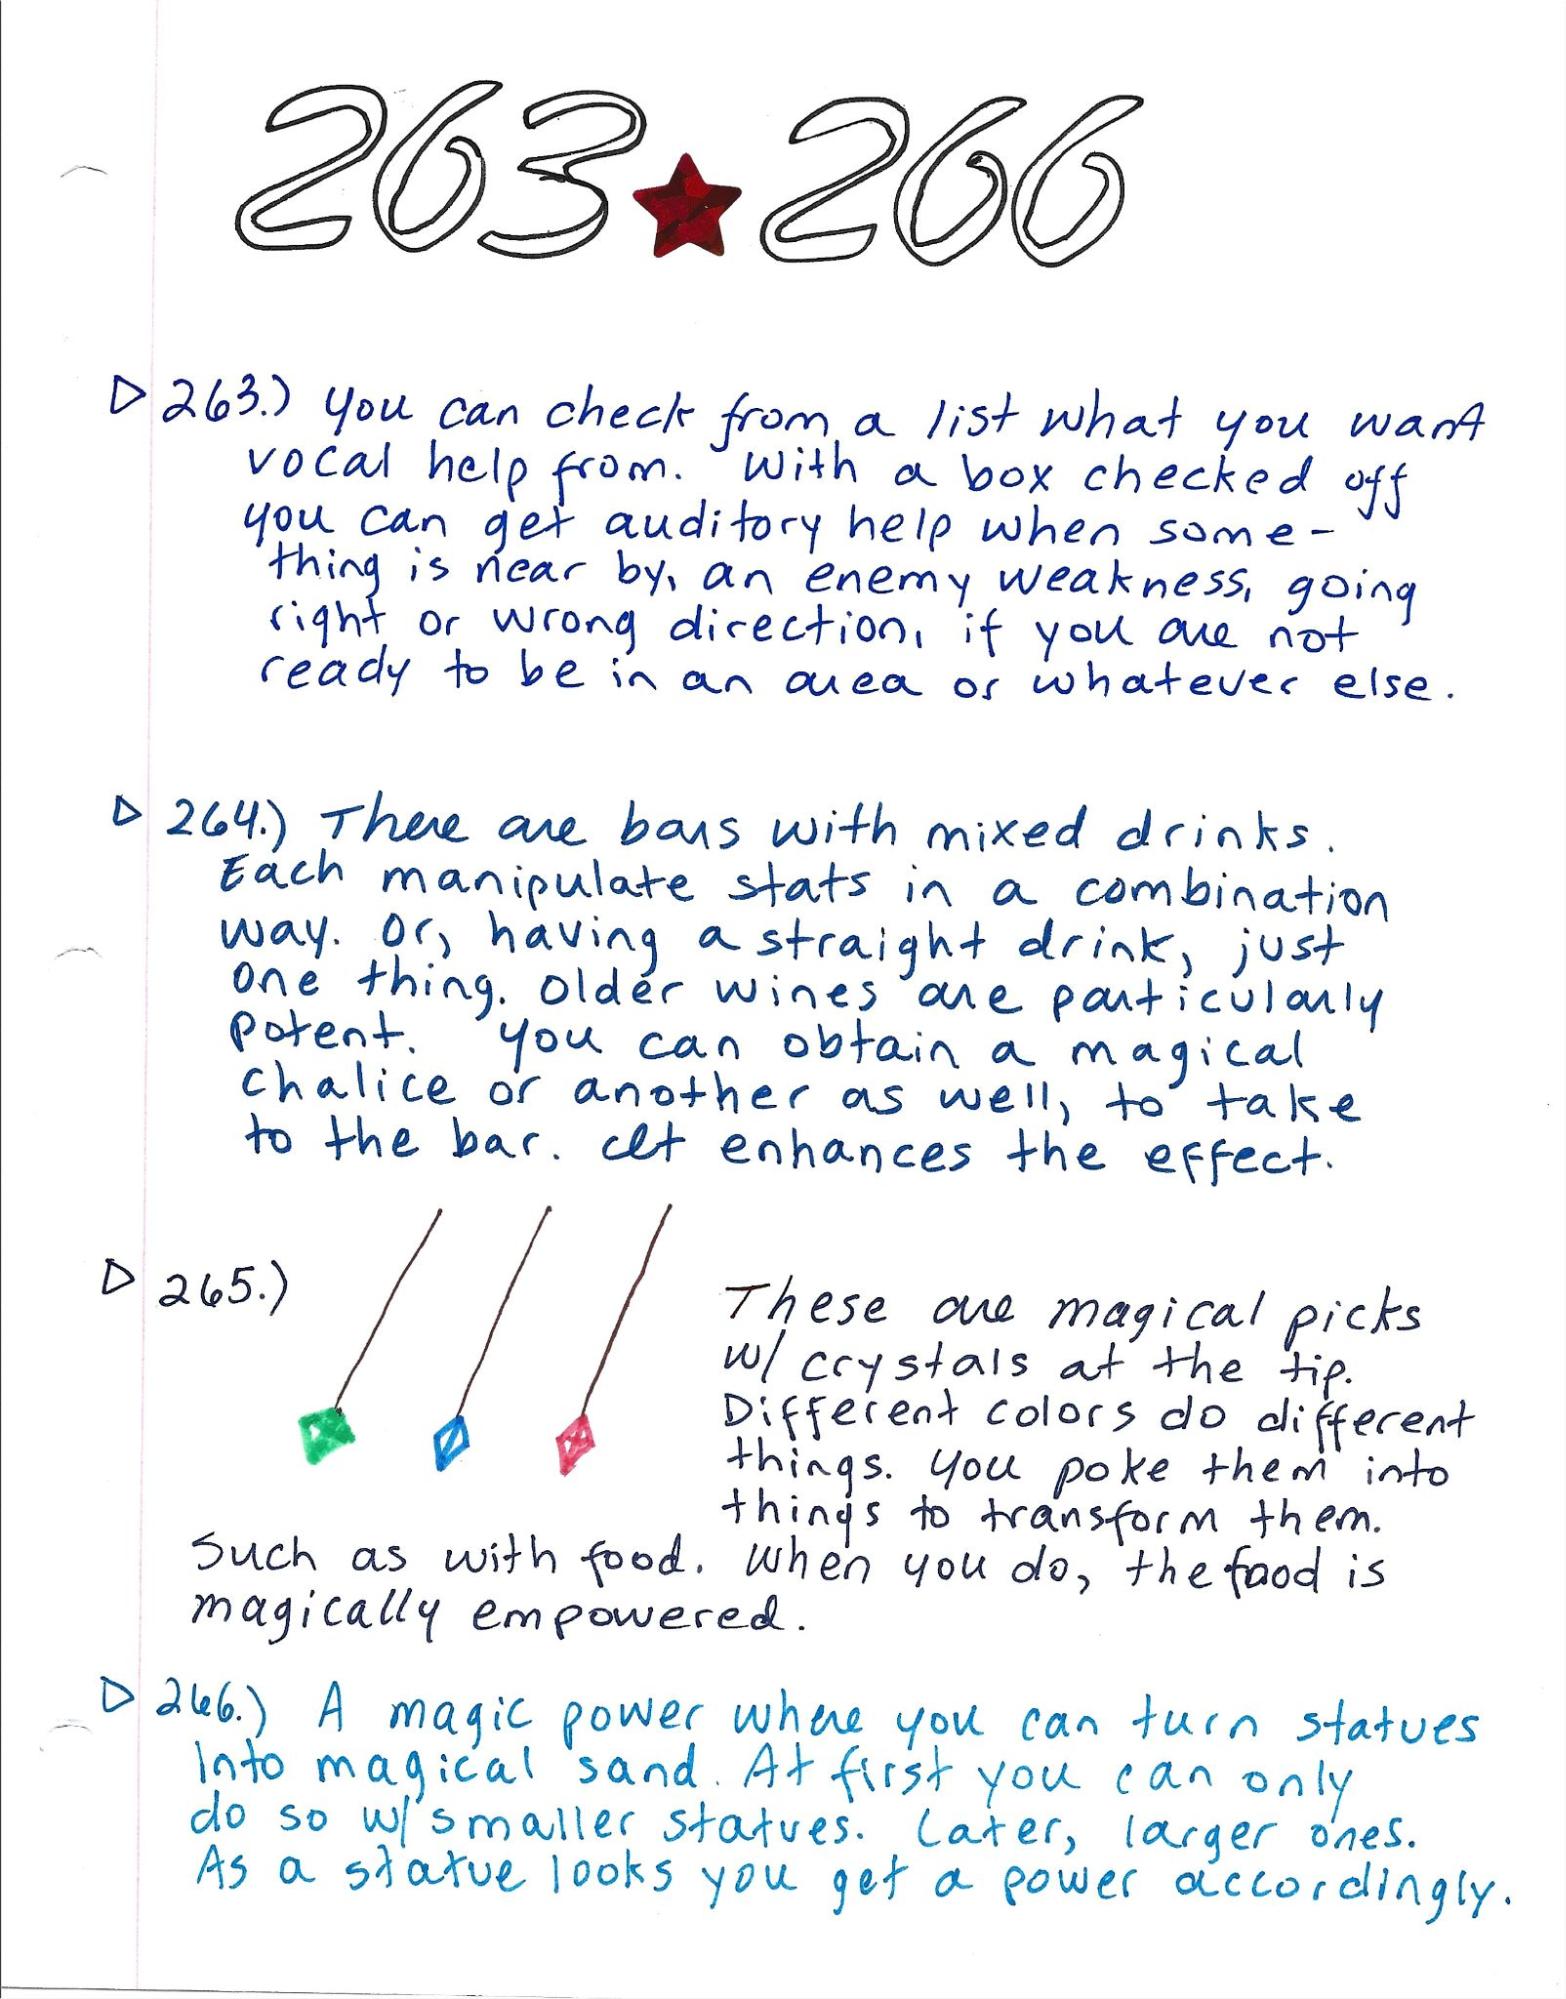 263 ★ 266
▷ 263.) You can check from a list what you want
vocal help from. With a box checked off
you can get auditory help when some-
thing is near by, an enemy weakness, going
right or wrong direction, if you are not
ready to be in an area or whatever else.
▷ 264.) There are bars with mixed drinks.
Each manipulate stats in a combination
way. Or, having a straight drink, just
one thing. Older wines are particularly
potent. You can obtain a magical
chalice or another as well, to take
to the bar. It enhances the effect.
▷ 265.)
These are magical picks
w/ crystals at the tip.
Different colors do different
things. You poke them into
things to transform them.
Such as with food. When you do, the food is
magically empowered.
▷ 266.) A magic power where you can turn statues
into magical sand. At first you can only
do so w/ smaller statues. Later, larger ones.
As a statue looks you get a power accordingly.